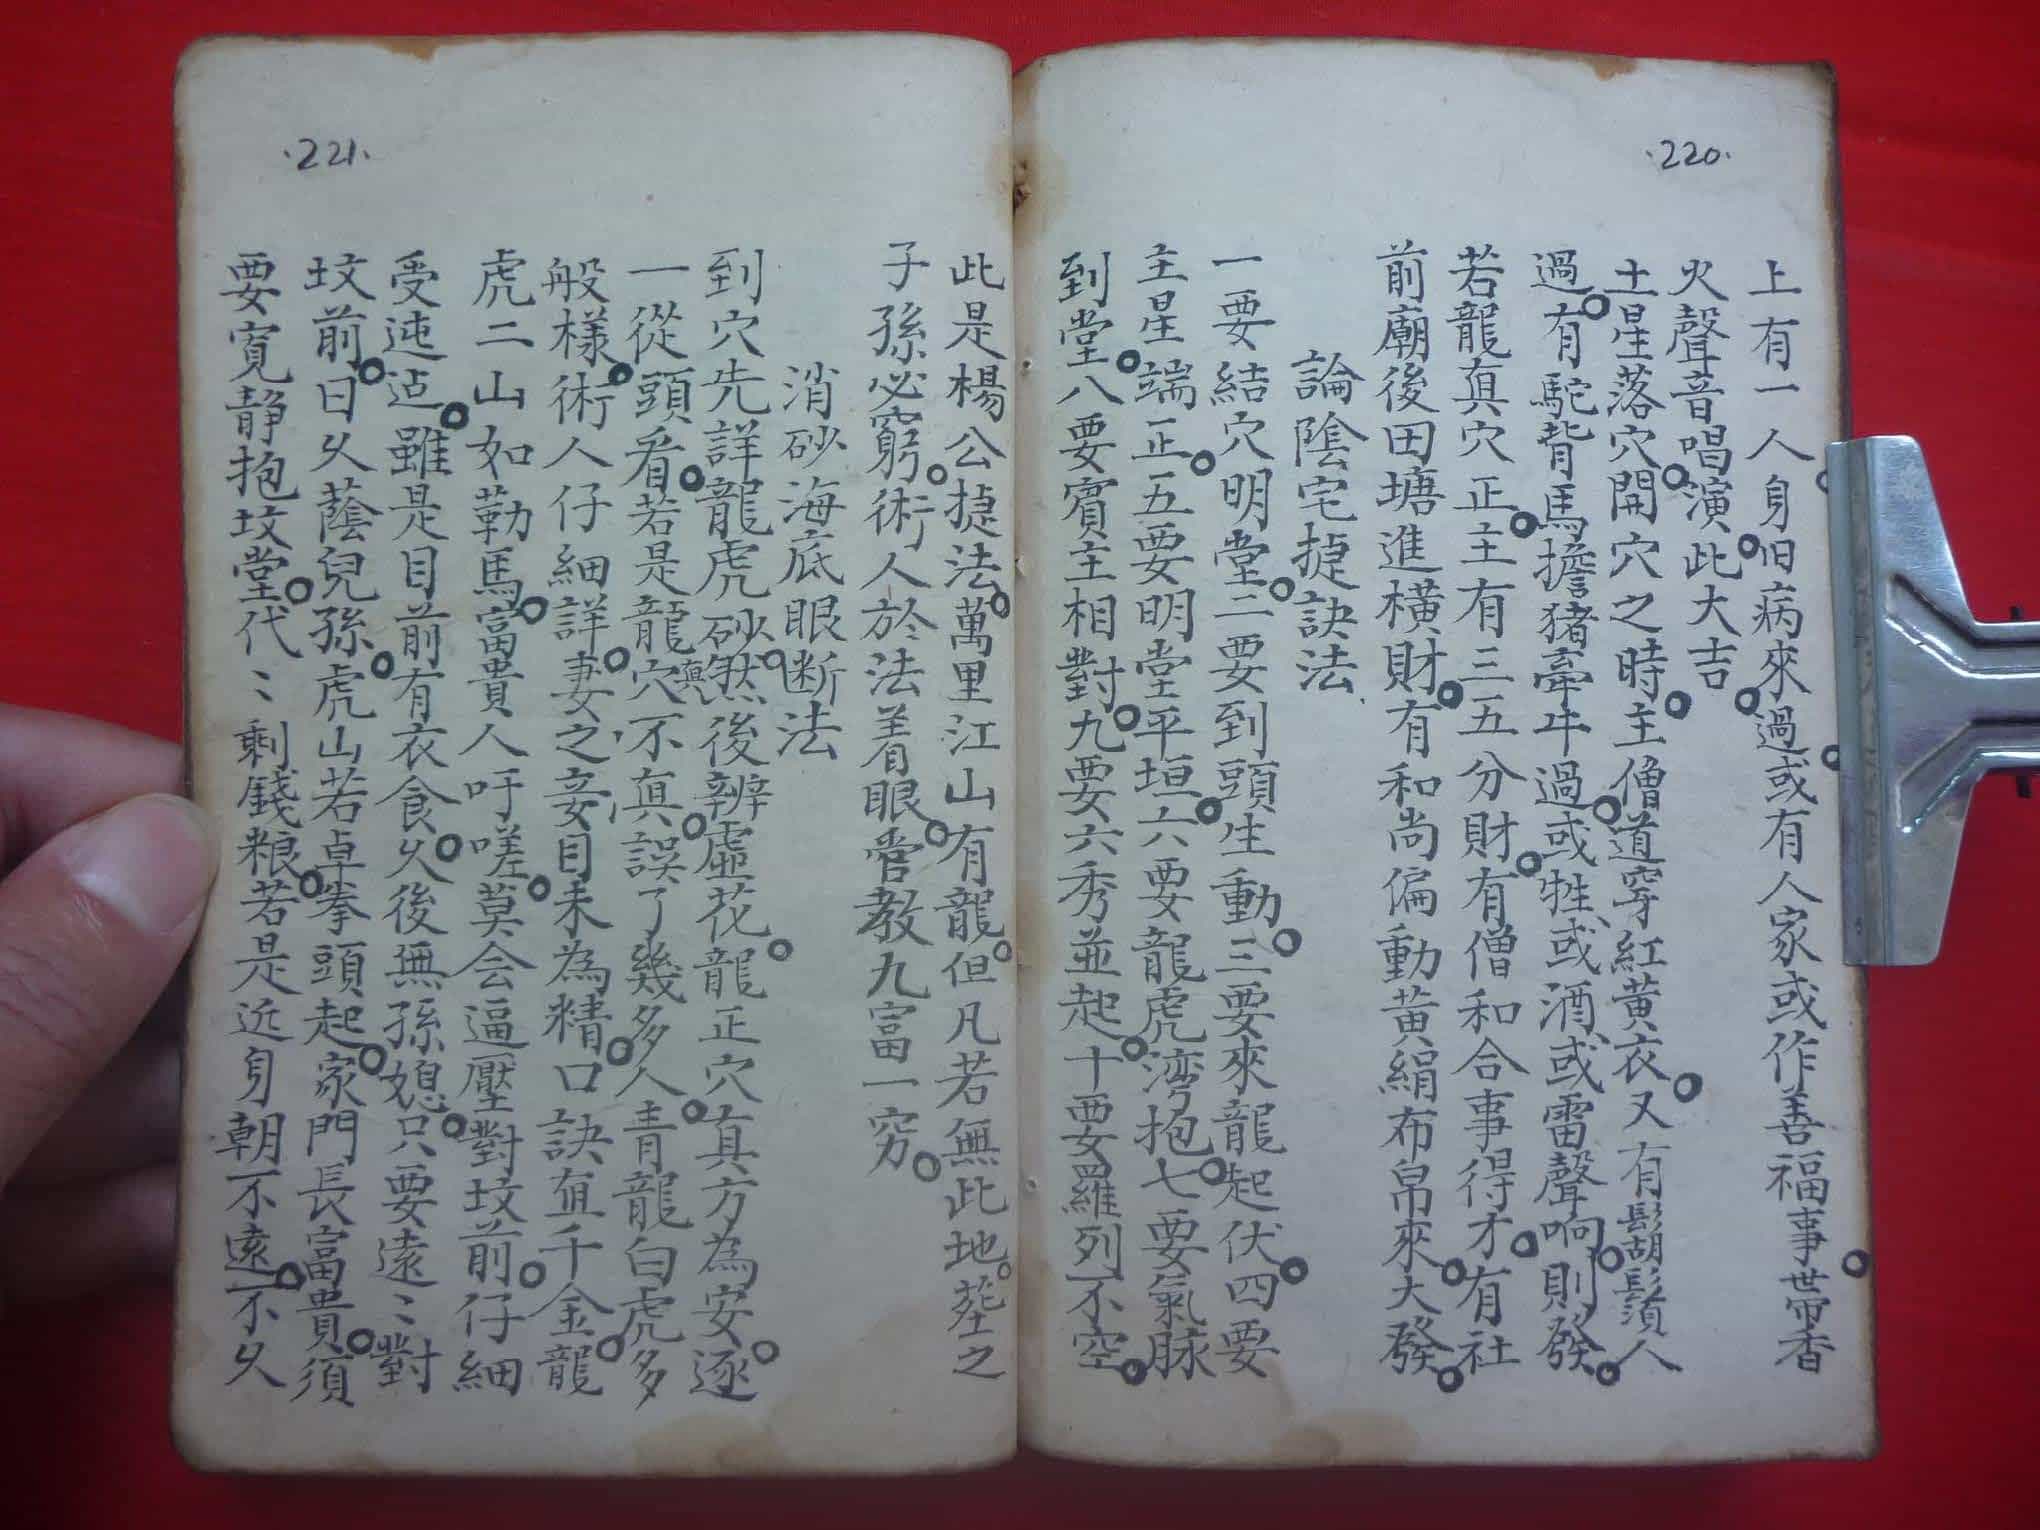 ·220·
上有一人身旧病來過或有人家或作善福事带香
火聲音唱演此大吉
土星落穴開穴之時主僧道穿紅黄衣又有鬍鬚人
過有駝背馬擔猪牽牛過或牲或酒或雷聲响則發
若龍真穴正主有三五分財有僧和合事得才有社
前廟後田塘進橫財有和尚偏動黃絹布帛來大發
論陰宅捷訣法
一要結穴明堂二要到頭生動三要來龍起伏四要
主星端正五要明堂平垣六要龍虎湾抱七要氣脉
到堂八要賓主相對九要六秀並起十要羅列不空
·221·
此是楊公捷法萬里江山有龍但凡若無此地塟之
子孫必窮術人於法着眼嘗教九富一穷
消砂海底眼断法
到穴先詳龍虎砂然後辨虛花龍正穴真方為安逐
一從頭看若是龍與穴不真誤了幾多人青龍白虎多
般樣術人仔細詳妻之妾目未為精口訣值千金龍
虎二山如勒馬富貴人吁嗟莫会逼壓對坟前仔細
受迍迍雖是目前有衣食久後無孫媳只要遠〻對
坟前日久蔭兒孫虎山若卓拳頭起家門長富貴須
要寬静抱坟堂代〻剩錢粮若是近身朝不遠不久